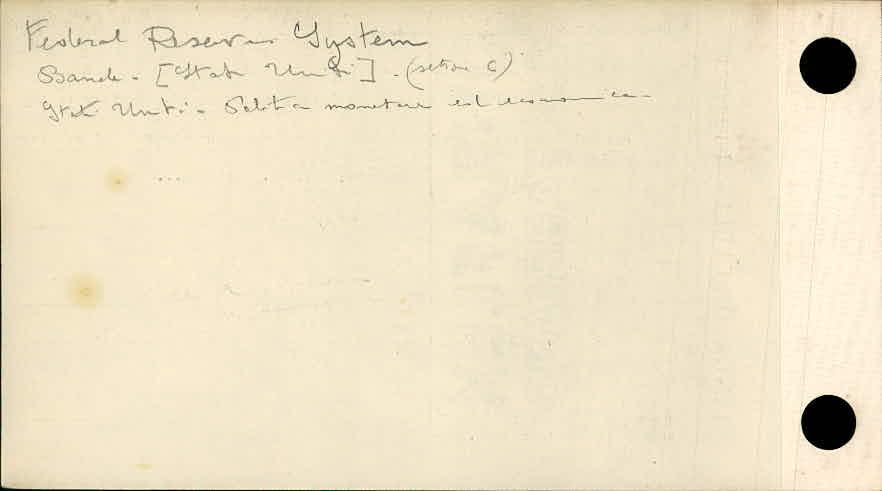 Federal Reserve System
Banche - [Stati Uniti] - (sezione 6)
Stati Uniti - Politica monetaria ed economica -